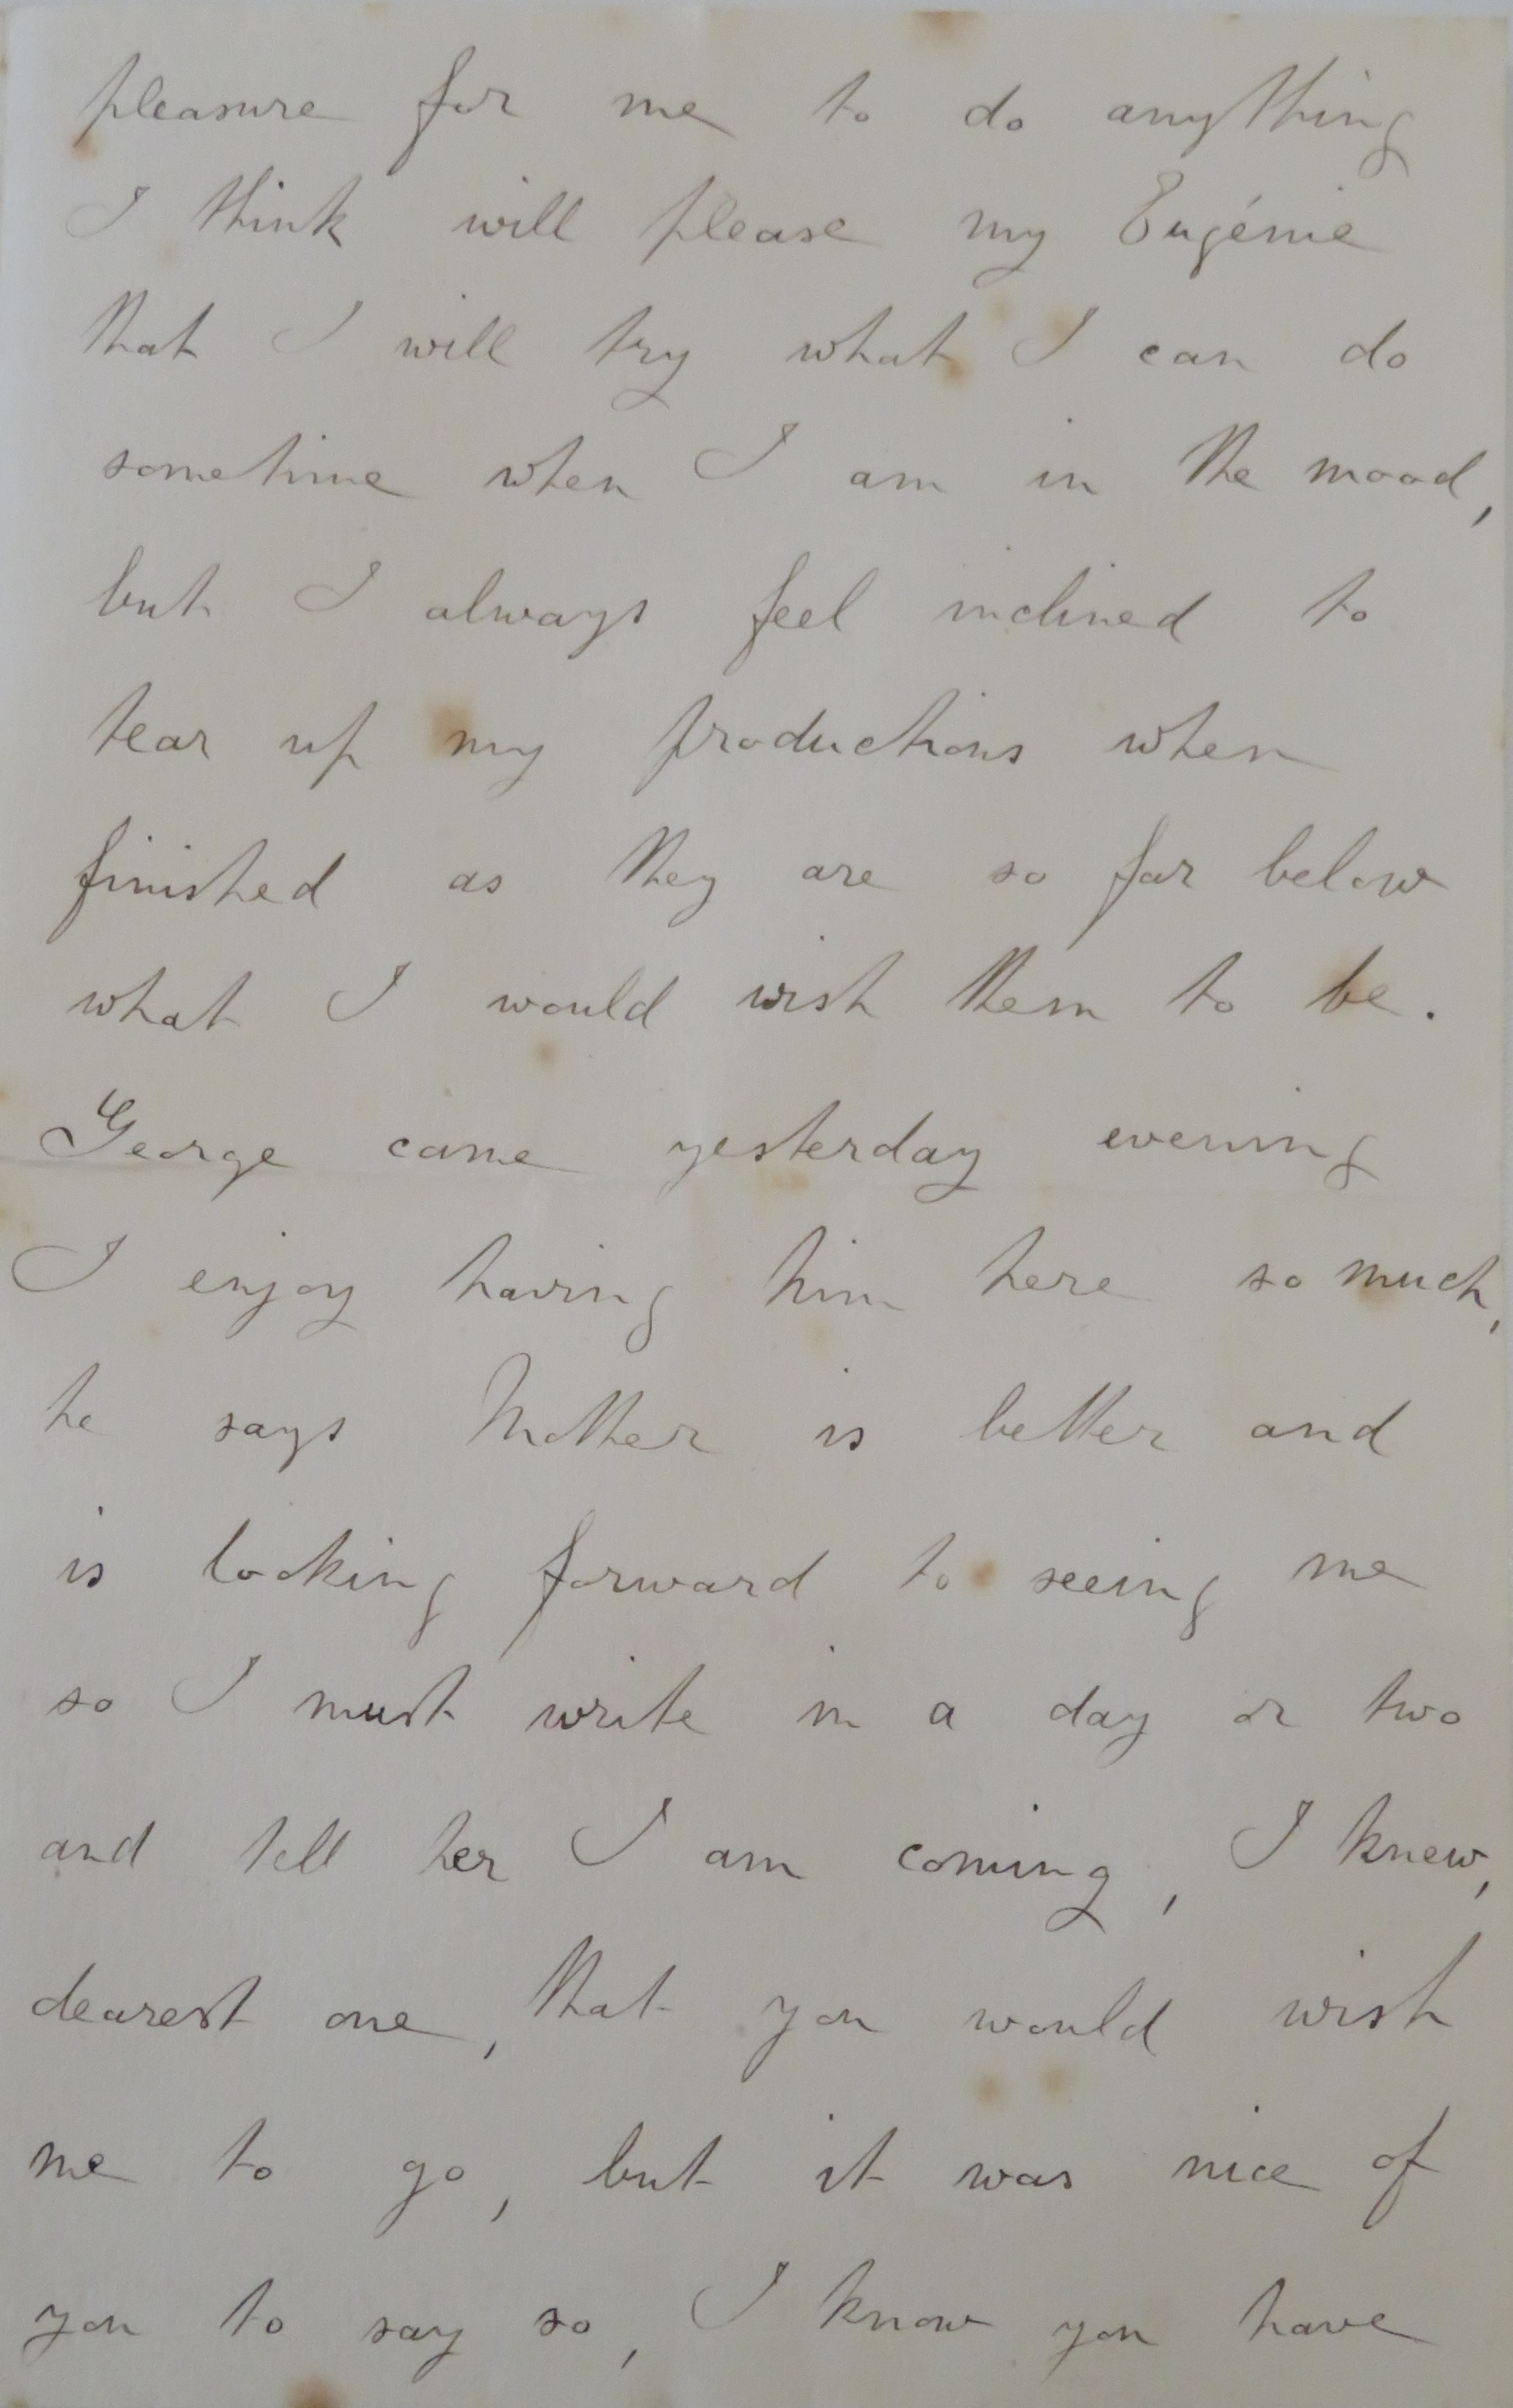 pleasure for me to do anything
I think will please my Eugénie
that I will try what I can do
sometime when I am in the mood,
but I always feel inclined to
tear up my productions when
finished as they are so far below
what I would wish them to be.
George came yesterday evening
I enjoy having him here so much,
he says Mother is better and
is looking forward to seeing me
so I must write in a day or two
and tell her I am coming, I knew,
dearest one, that you would wish
me to go, but it was nice of
you to say so, I know you have